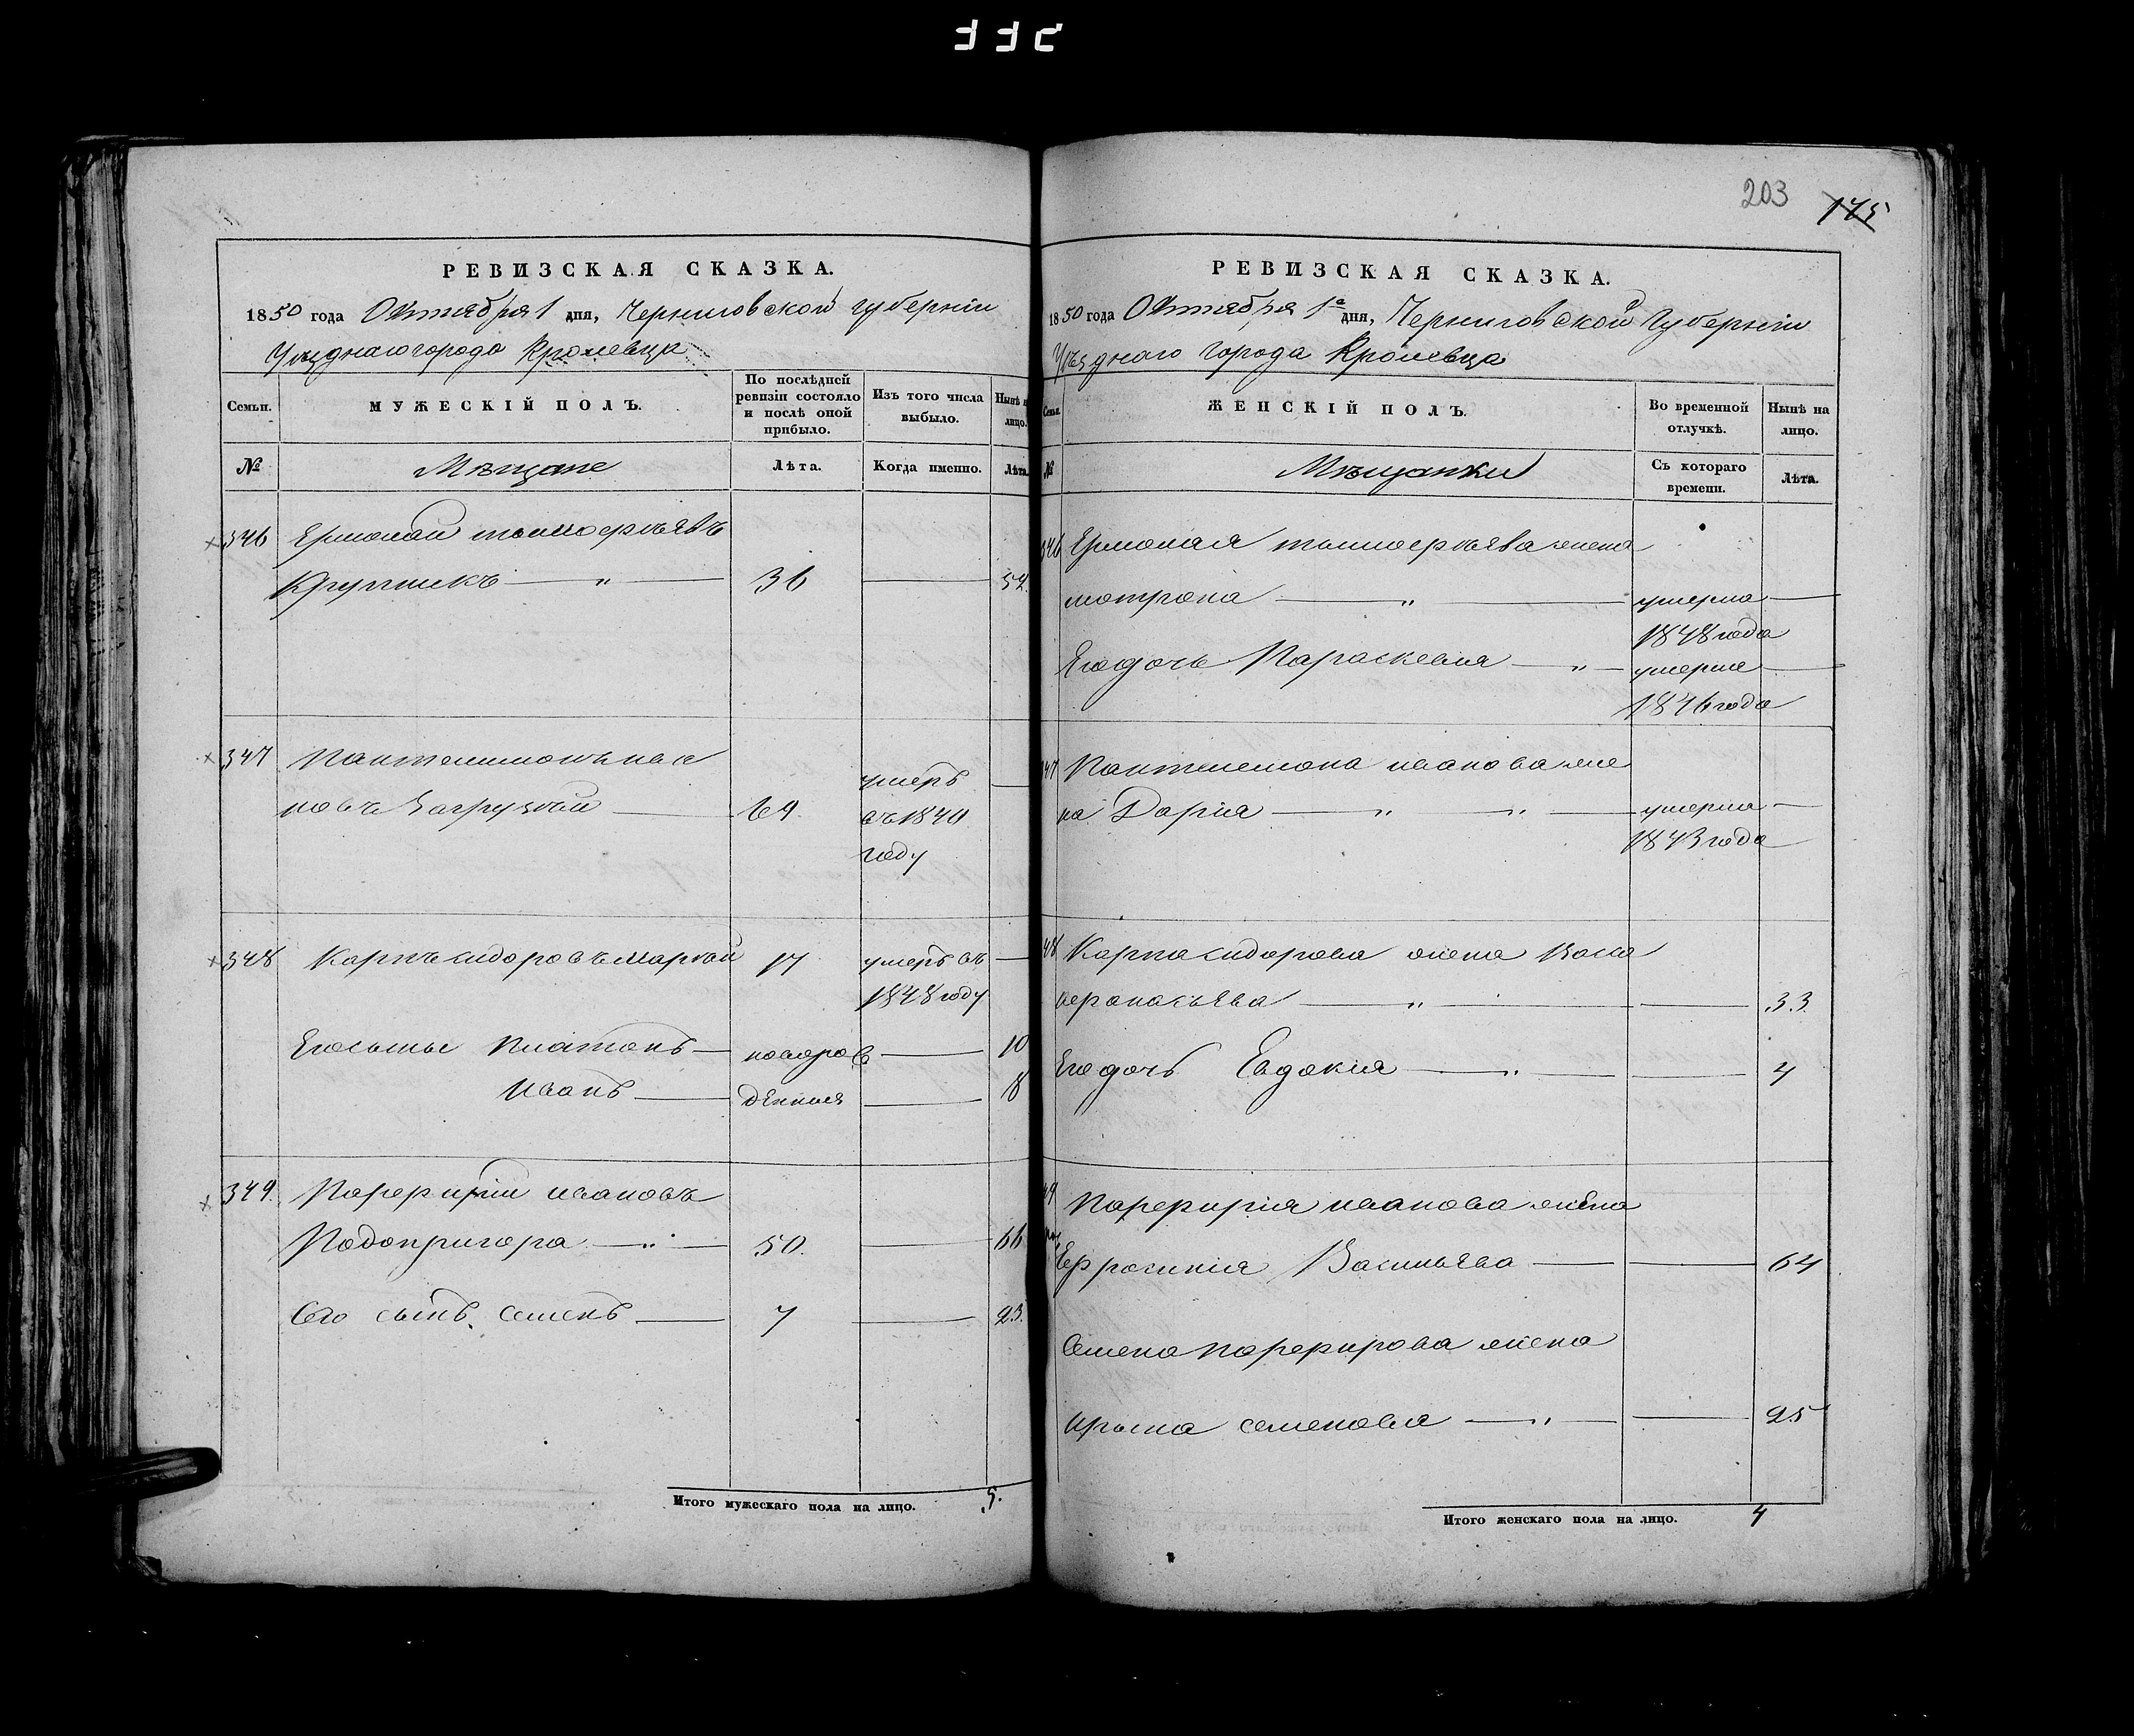 203
175
РЕВИЗСКАЯ СКАЗКА.
1850 года Октября 1 дня, Черниговской губерніи
Уѣзднаго города Кролевца
Семьи.
МУЖЕСКІЙ ПОЛЪ.
По послѣдней ревизіи состояло и послѣ оной прибыло.
Изъ того числа выбыло.
Нынѣ на лицо.
№
Мѣщане
Лѣта.
Когда именно.
Лѣта.
346 Ермолай
36 52.
347 Пантелимонъ Ива
новъ 69 умеръ
въ 1840
году
348 Карпъ Сидоровъ 17 умеръ въ
1848 году
Его сыны Платонъ новорож 10
Иванъ денныя 8
349. Порфирій Ивановъ
Подопригора 50. 66
Его сынъ Семенъ 7 23.
Итого мужескаго пола на лицо. 5.
РЕВИЗСКАЯ СКАЗКА.
1850 года Октября 1е дня, Черниговской Губерніи
Уѣзднаго города Кролевца
Семьи.
ЖЕНСКІЙ ПОЛЪ.
Во временной отлучкѣ.
Нынѣ на лицо.
№
Мѣщанки
Съ котораго времени.
Лѣта.
346 Ермолая жена
Мотрона умерла
1848 года
Его дочь Параскевия умерла
1846 года
47 Пантелемона Иванова же
на Дарія умерла
1843 года
48 Карпа Сидорова жена
33.
Его дочь Евдокия 4
49 Порфирія Иванова жена
Ефросинія Васильева 64
Семена Порфирова жена
Ирына Семенова 25
Итого женскаго пола на лицо. 4